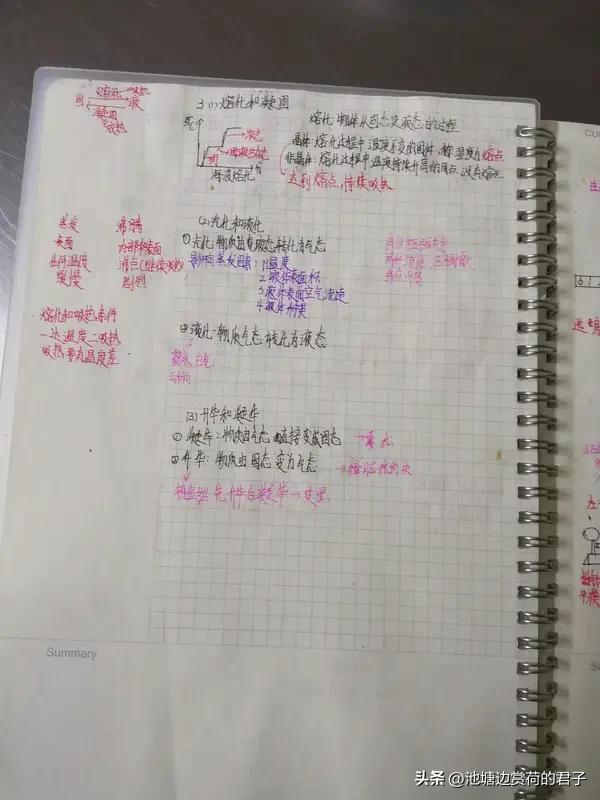 熔化 吸热
固 液
凝固
放热
3(1)熔化和凝固
熔化:物体从固态变液态的过程
晶体:熔化过程中温度不变的固体,有温度为熔点
非晶体:熔化过程中温度持续升高的固体,没有熔点
达到熔点,持续吸热
海波熔化
蒸发 沸腾
表面 内部和表面
任何温度 沸点(继续吸热)
缓慢 剧烈
熔化和吸热条件
一达温度二吸热
吸热要有温度差
(2)汽化和液化
①汽化:物质由液态转化为气态
影响蒸发因素:1.温度
2.液体表面积
3.液体表面空气流速
4.液体种类
②液化:物质气态转化为液态
白气
(3)升华和凝华
①凝华:物质由气态直接变成固态
②升华:物质由固态变为气态
先升华后凝华→变黑
Summary
头条 @池塘边赏荷的君子